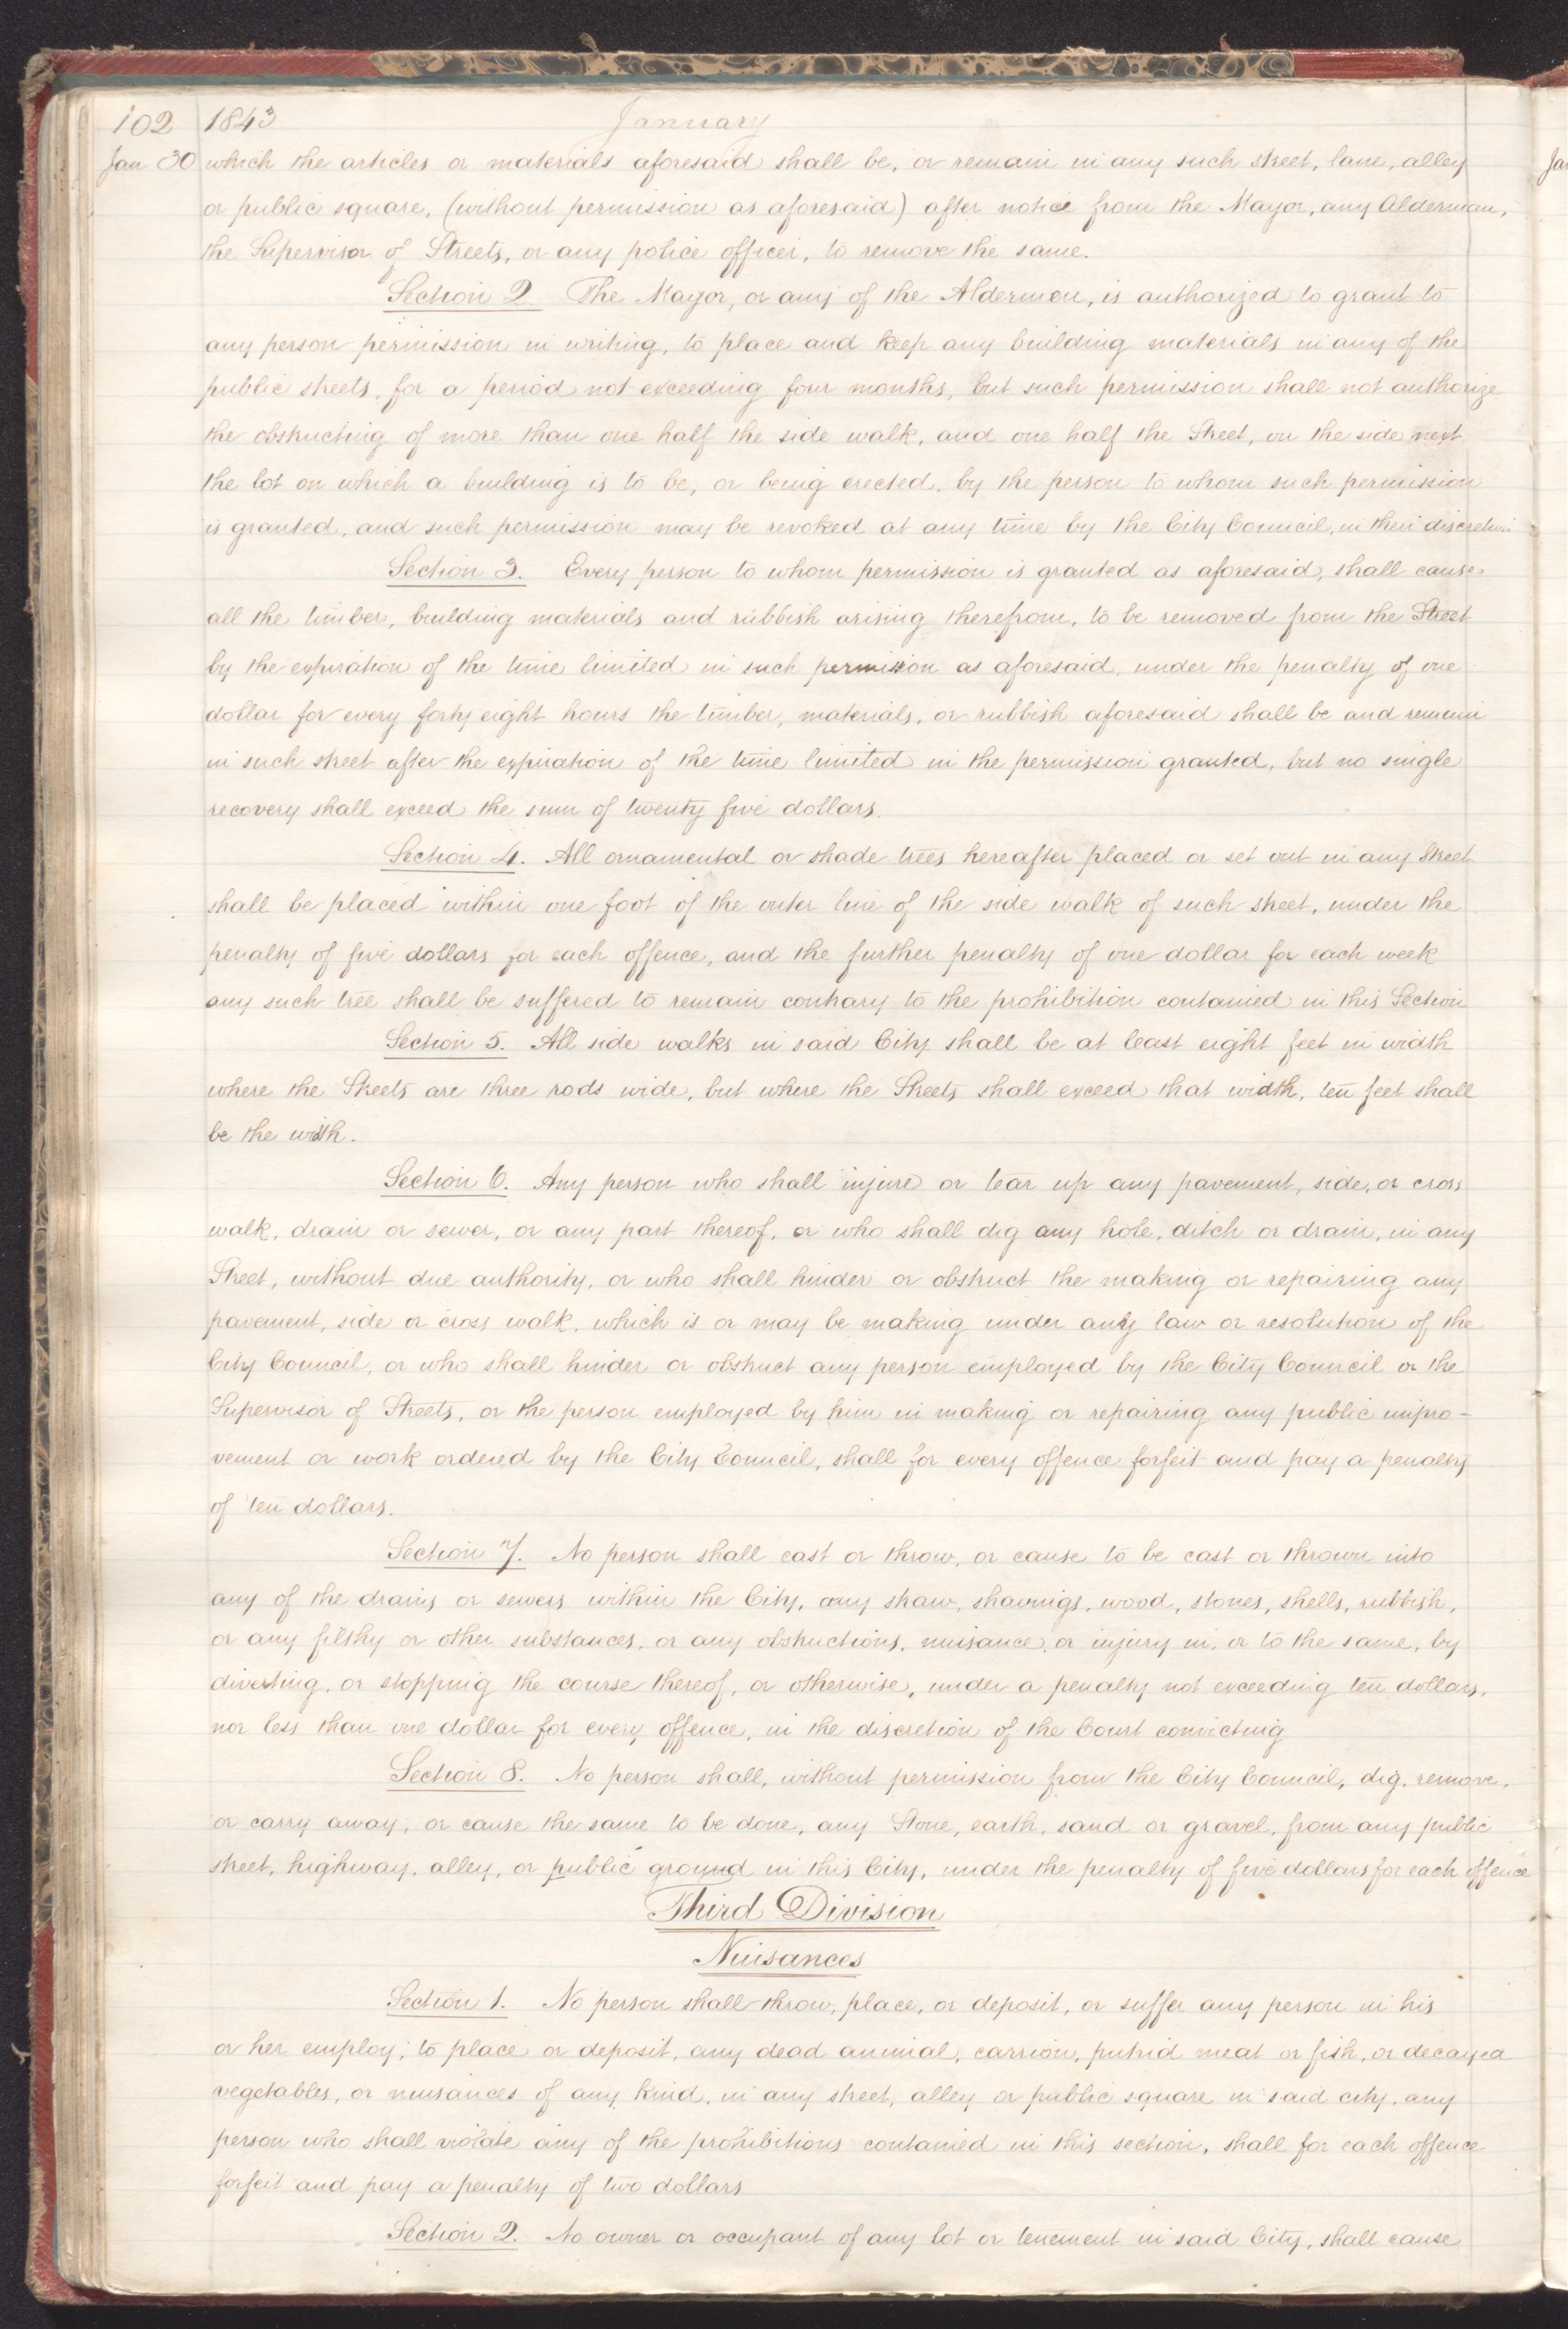 102 1843 January
Jan 30 which the articles or materials aforesaid shall be, or remain in any such street, lane, alley
or public square, (without permission as aforesaid) after notice from the Mayor, any Alderman,
the Supervisor of Streets, or any police officer, to remove the same.
Section 2. The Mayor, or any of the Aldermen, is authorized to grant to
any person permission in writing, to place and keep any building materials in any of the
public streets, for a period not exceeding four months, but such permission shall not authorize
the obstructing of more than one half the side walk, and one half the Street, on the side next
the lot on which a building is to be, or being erected, by the person to whom such permission
is granted, and such permission may be revoked at any time by the City Council, in their discretion
Section 3. Every person to whom permission is granted as aforesaid, shall cause
all the timber, building materials and rubbish arising therefrom, to be removed from the Street
by the expiration of the time limited in such permission as aforesaid, under the penalty of one
dollar for every forty eight hours the timber, materials, or rubbish aforesaid shall be and remain
in such street after the expiration of the time limited in the permission granted, but no single
recovery shall exceed the sum of twenty five dollars.
Section 4. All ornamental or shade trees hereafter placed or set out in any Street
shall be placed within one foot of the outer line of the side walk of such street, under the
penalty of five dollars for each offence, and the further penalty of one dollar for each week
any such tree shall be suffered to remain contrary to the prohibition contained in this Section
Section 5. All side walks in said City shall be at least eight feet in width
where the Streets are three rods wide, but where the Streets shall exceed that width, ten feet shall
be the width.
Section 6. Any person who shall injure or tear up any pavement, side, or cross
walk, drain or sewer, or any part thereof, or who shall dig any hole, ditch or drain, in any
Street, without due authority, or who shall hinder or obstruct the making or repairing any
pavement, side or cross walk, which is or may be making under any law or resolution of the
City Council, or who shall hinder or obstruct any person employed by the City Council or the
Supervisor of Streets, or the person employed by him in making or repairing any public impro-
vement or work ordered by the City Council, shall for every offence forfeit and pay a penalty
of ten dollars.
Section 7. No person shall cast or throw, or cause to be cast or thrown into
any of the drains or sewers within the City, any straw, shavings, wood, stones, shells, rubbish,
or any filthy or other substances, or any obstructions, nuisance, or injury in, or to the same, by
diverting, or stopping the course thereof, or otherwise, under a penalty not exceeding ten dollars,
nor less than one dollar for every offence, in the discretion of the Court convicting
Section 8. No person shall, without permission from the City Council, dig, remove,
or carry away, or cause the same to be done, any Stone, earth, sand or gravel, from any public
street, highway, alley, or public ground in this City, under the penalty of five dollars for each offence
Third Division
Nuisances
Section 1. No person shall throw, place, or deposit, or suffer any person in his
or her employ, to place or deposit, any dead animal, carrion, putrid meat or fish, or decayed
vegetables, or nuisances of any kind, in any street, alley or public square in said city, any
person who shall violate any of the prohibitions contained in this section, shall for each offence
forfeit and pay a penalty of two dollars
Section 2. No owner or occupant of any lot or tenement in said City, shall cause